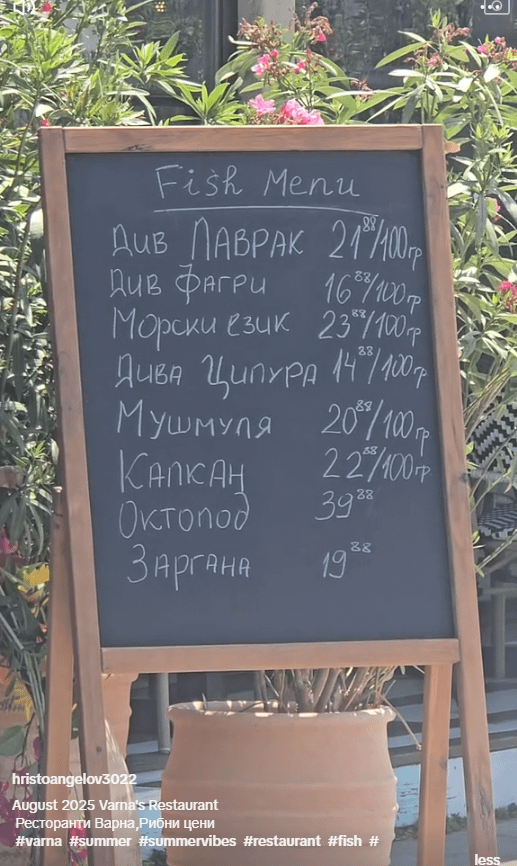 Fish Menu
Див Лаврак 21⁸⁸/100гр
Див Фагри 16⁸⁸/100гр
Морски език 23⁸⁸/100гр
Дива Ципура 14⁸⁸/100гр
Мушмуля 20⁸⁸/100гр
Капкан 22⁸⁸/100гр
Октопод 39⁸⁸
Заргана 19⁸⁸
hristoangelov3022
August 2025 Varna's Restaurant
Ресторанти Варна,Рибни цени
#varna #summer #summervibes #restaurant #fish #
less